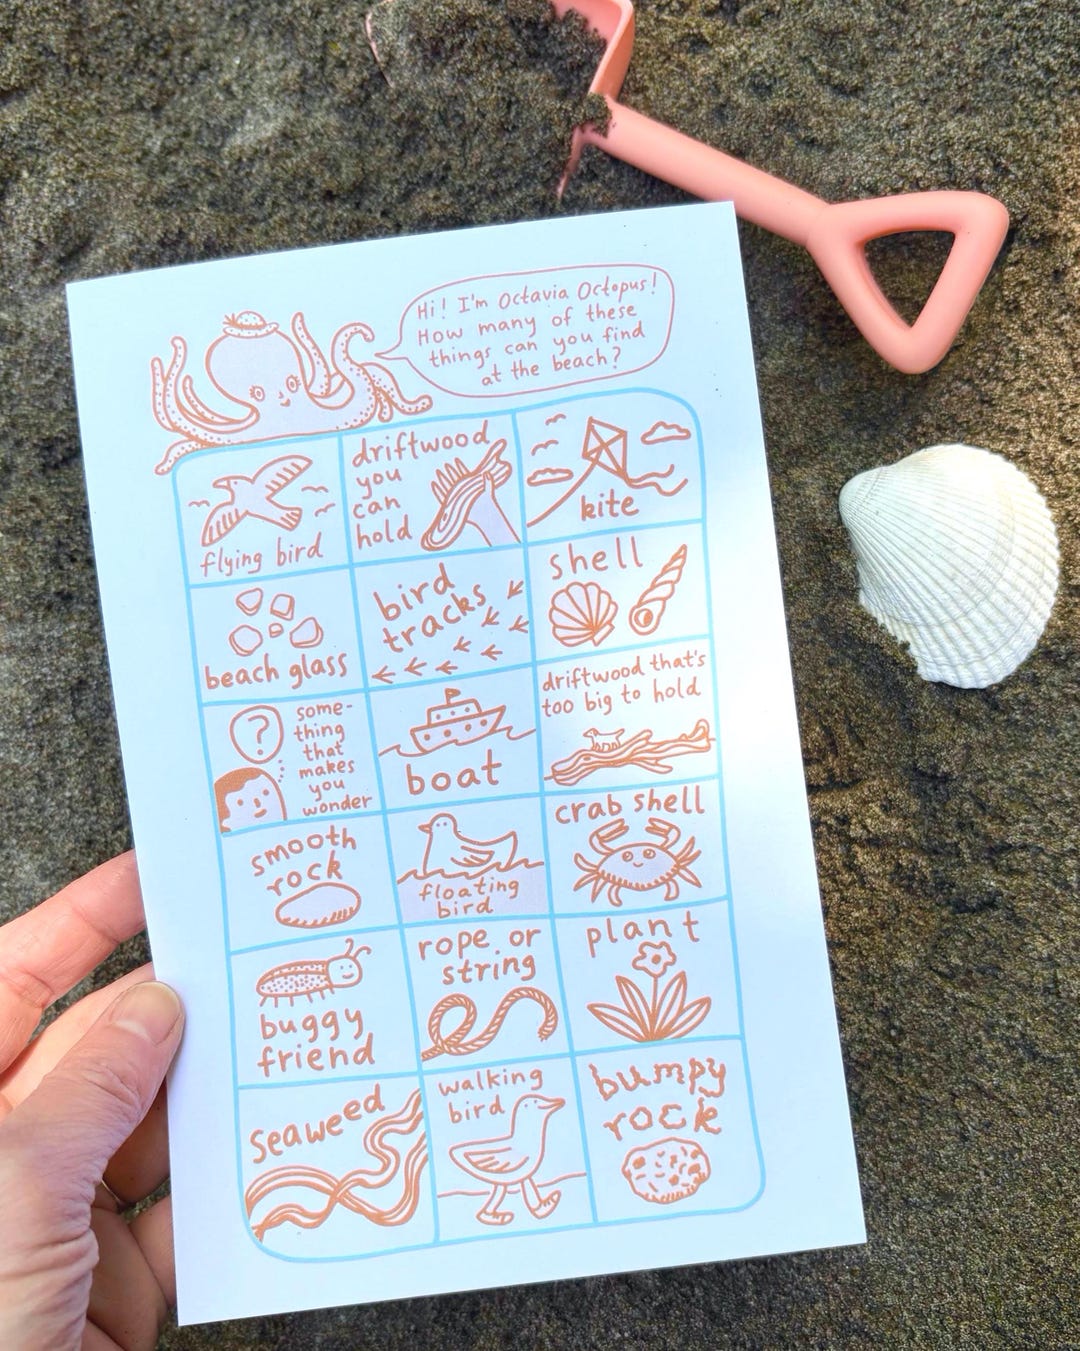 Hi! I'm Octavia Octopus!
How many of these
things can you find
at the beach?
flying bird
driftwood
you
can
hold
kite
beach glass
bird
tracks
shell
?
some-
thing
that
makes
you
wonder
boat
driftwood that's
too big to hold
smooth
rock
floating
bird
crab shell
buggy
friend
rope or
string
plant
seaweed
walking
bird
bumpy
rock